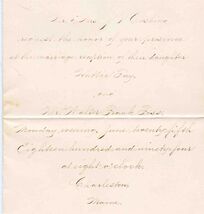 Mr. & Mrs. J. Cushing
request the honor of your presence
at the marriage reception of their daughter
May,
and
Mr. Walter Foss.
Monday evening, June twenty fifth
Eighteen hundred and ninety four
at eight o'clock.
Charleston,
Maine.